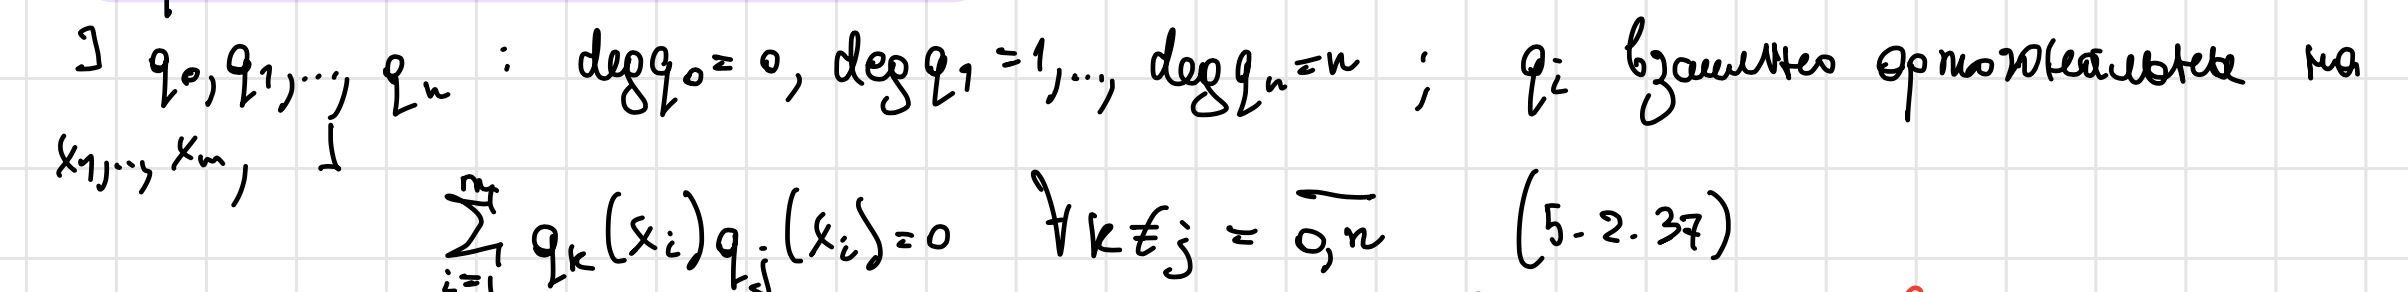 ] q₀, q₁, ..., qₙ : deg q₀ = 0, deg q₁ = 1, ..., deg qₙ = n ; qᵢ взаимно ортогональные на
x₁, ..., xₘ, ⊥
∑ᵢ₌₁ᵐ qₖ(xᵢ)qⱼ(xᵢ) = 0 ∀k ≠ j = 0,n̅ (5.2.37)